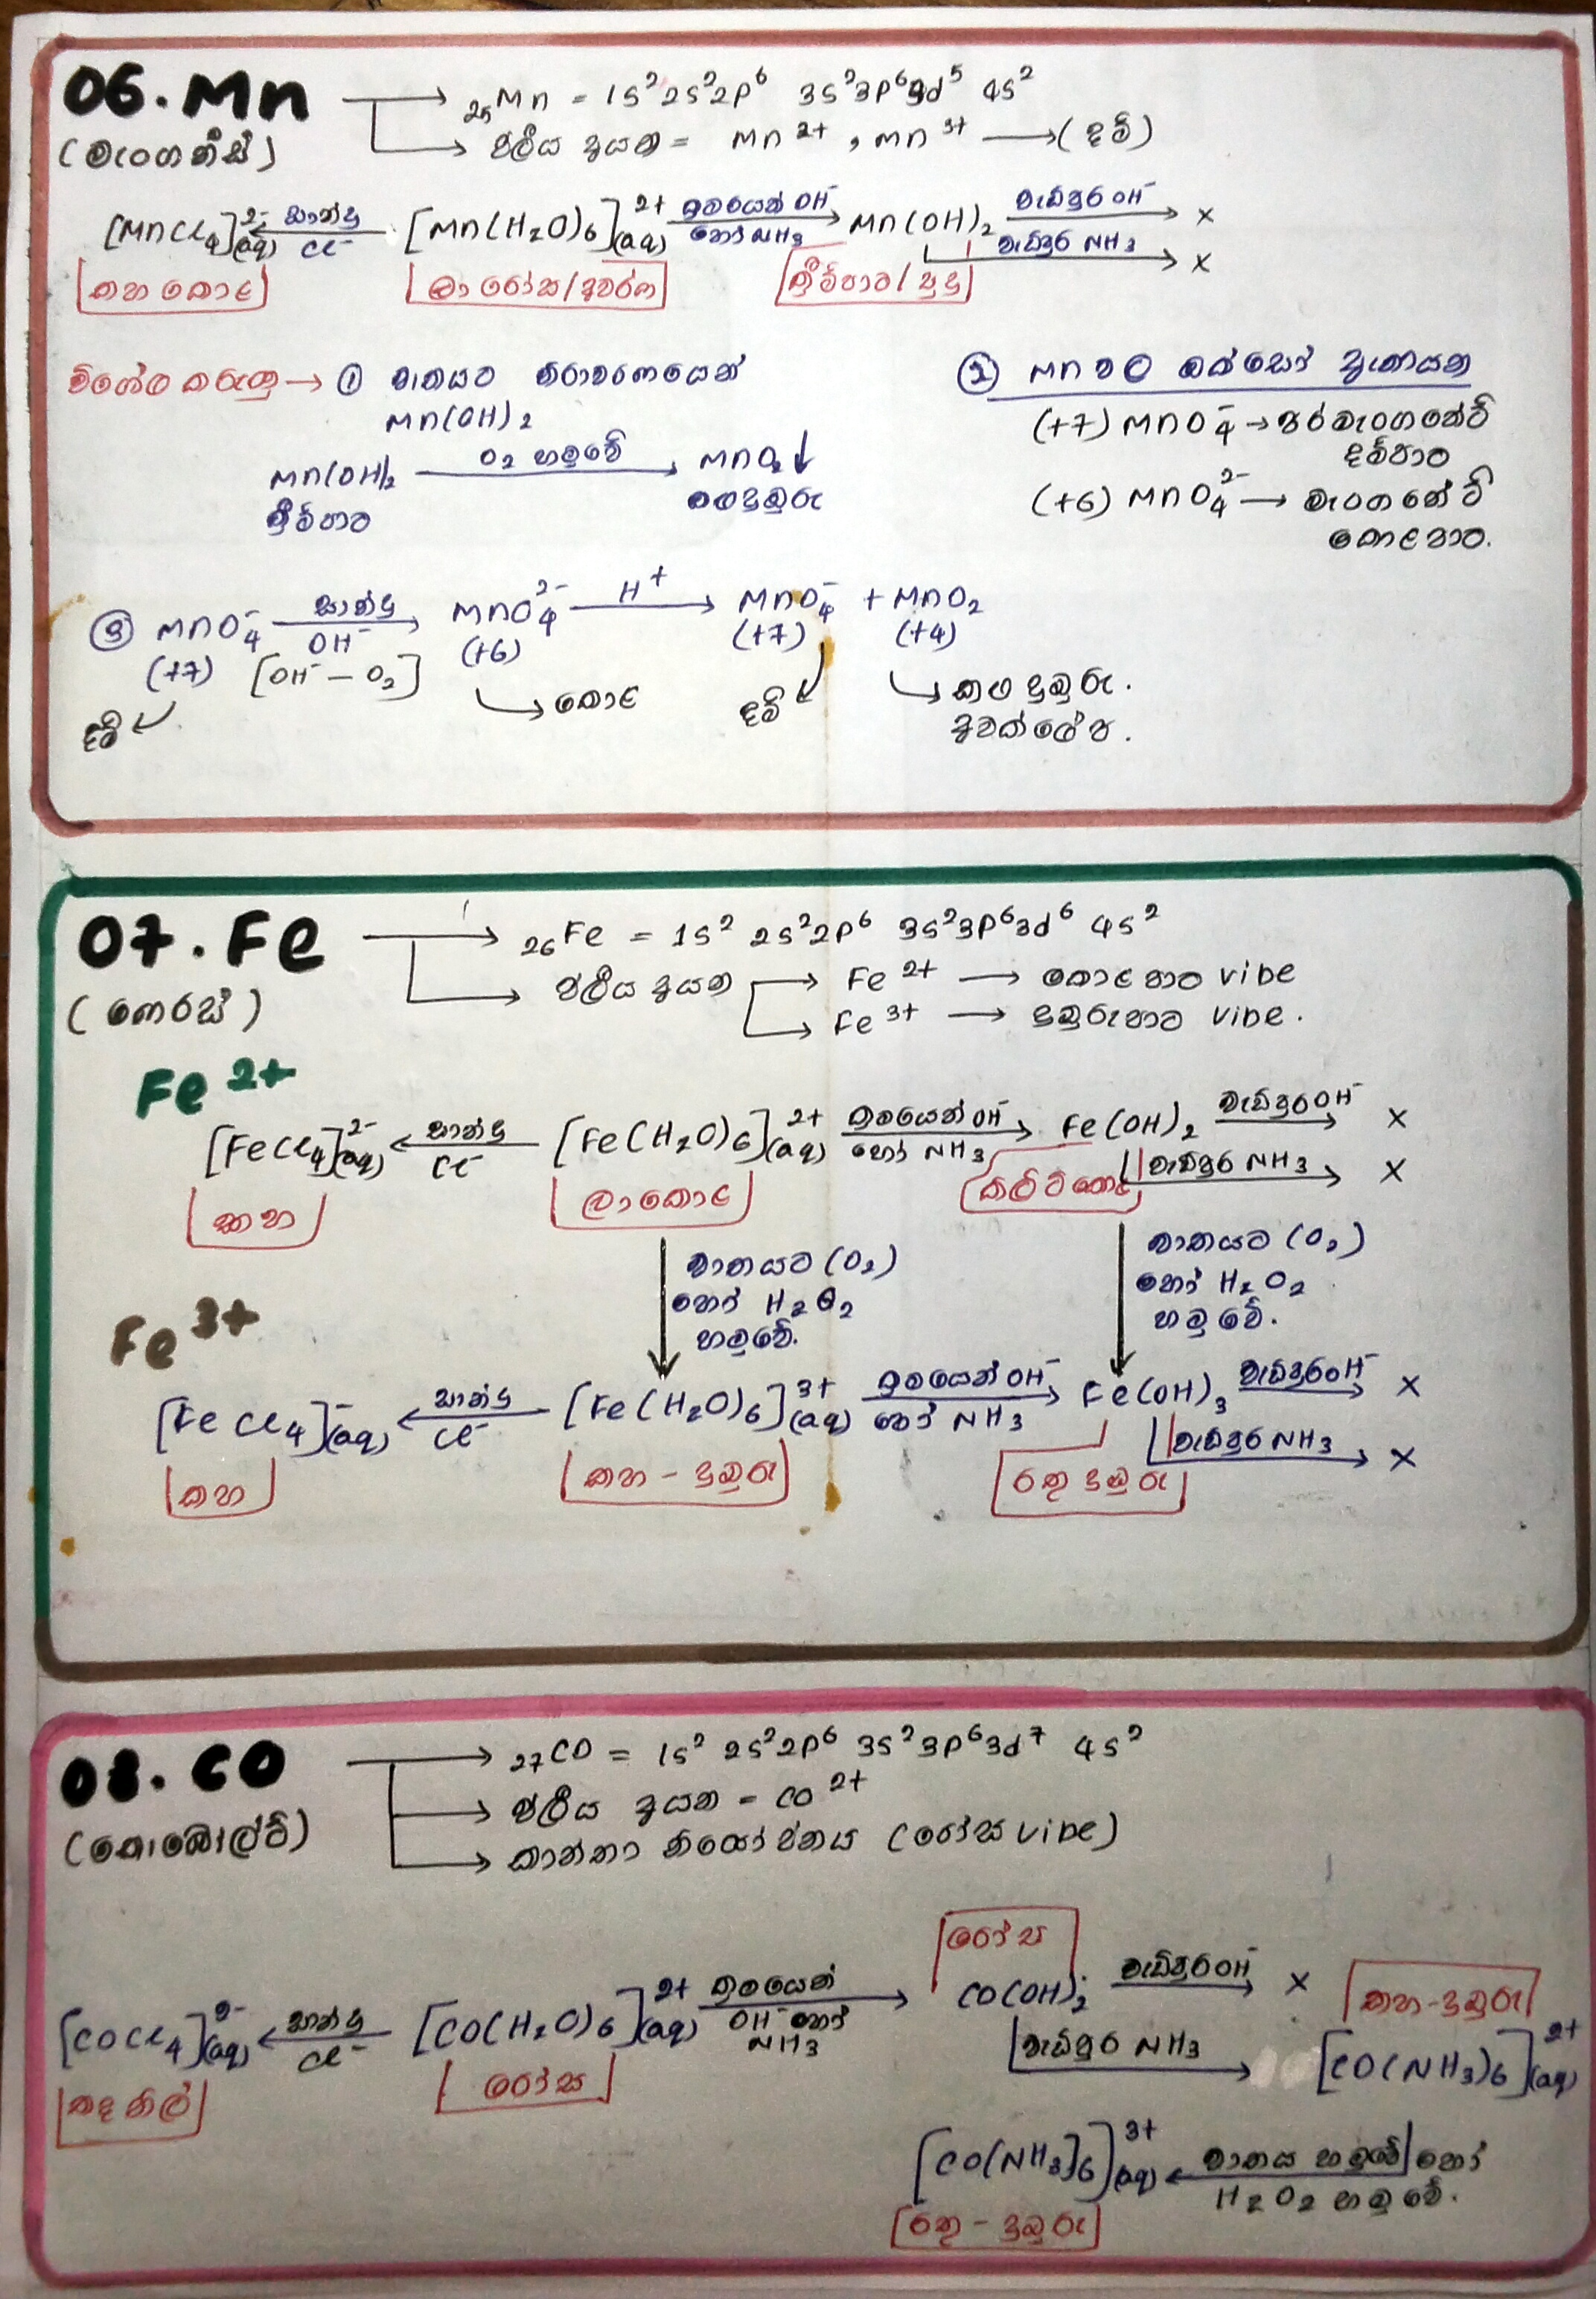 06. Mn
(මැංගනීස්)
₂₅Mn = 1s² 2s² 2p⁶ 3s² 3p⁶ 3d⁵ 4s²
ජලීය අයන = Mn²⁺, Mn³⁺ → (දම්)
[MnCl₄]²⁻(aq) ← සාන්ද්‍ර Cl⁻ [Mn(H₂O)₆]²⁺(aq) ක්‍රමයෙන් OH⁻ හෝ NH₃ → Mn(OH)₂ වැඩිපුර OH⁻ → ×
වැඩිපුර NH₃ → ×
කහ කොළ
ලා රෝස/අවර්ණ
ක්‍රීම්පාට/සුදු
විශේෂ කරුණු → ① වාතයට නිරාවරණයෙන්
Mn(OH)₂
Mn(OH)₂ O₂ හමුවේ → MnO₂↓
ක්‍රීම්පාට
② Mn වල ඔක්සෝ ඇනායන
(+7) MnO₄⁻ → පරමැංගනේට්
දම්පාට
(+6) MnO₄²⁻ → මැංගනේට්
කොළපාට.
③ MnO₄⁻ සාන්ද්‍ර OH⁻ → MnO₄²⁻ H⁺ → MnO₄⁻ + MnO₂
(+7) [OH⁻ – O₂] (+6) (+7) (+4)
දම් කොළ දම් දුඹුරු.
අවක්ෂේප.
07. Fe
(ෆෙරස්)
₂₆Fe = 1s² 2s² 2p⁶ 3s² 3p⁶ 3d⁶ 4s²
ජලීය අයන → Fe²⁺ → කොළපාට vibe
→ Fe³⁺ → දුඹුරුපාට vibe.
Fe²⁺
[FeCl₄]²⁻(aq) ← සාන්ද්‍ර Cl⁻ [Fe(H₂O)₆]²⁺(aq) ක්‍රමයෙන් OH⁻ හෝ NH₃ → Fe(OH)₂ වැඩිපුර OH⁻ → ×
වැඩිපුර NH₃ → ×
කහ
ලාකොළ
කිලිටිකොළ
වාතයට (O₂)
හෝ H₂O₂
හමුවේ.
වාතයට (O₂)
හෝ H₂O₂
හමුවේ.
Fe³⁺
[FeCl₄]⁻(aq) ← සාන්ද්‍ර Cl⁻ [Fe(H₂O)₆]³⁺(aq) ක්‍රමයෙන් OH⁻ හෝ NH₃ → Fe(OH)₃ වැඩිපුර OH⁻ → ×
වැඩිපුර NH₃ → ×
කහ
කහ - දුඹුරු
රතු දුඹුරු
08. CO
(කොබෝල්ට්)
₂₇CO = 1s² 2s² 2p⁶ 3s² 3p⁶ 3d⁷ 4s²
ජලීය අයන = CO²⁺
කාන්තා නියෝජනය (රෝස vibe)
රෝස
[COCl₄]²⁻(aq) ← සාන්ද්‍ර Cl⁻ [CO(H₂O)₆]²⁺(aq) ක්‍රමයෙන් OH⁻ හෝ NH₃ → CO(OH)₂ වැඩිපුර OH⁻ → ×
කහ - දුඹුරු
වැඩිපුර NH₃ → [CO(NH₃)₆]²⁺(aq)
තද නිල්
රෝස
[CO(NH₃)₆]³⁺(aq) ← වාතය හමුවේ හෝ
H₂O₂ හමුවේ.
රතු - දුඹුරු